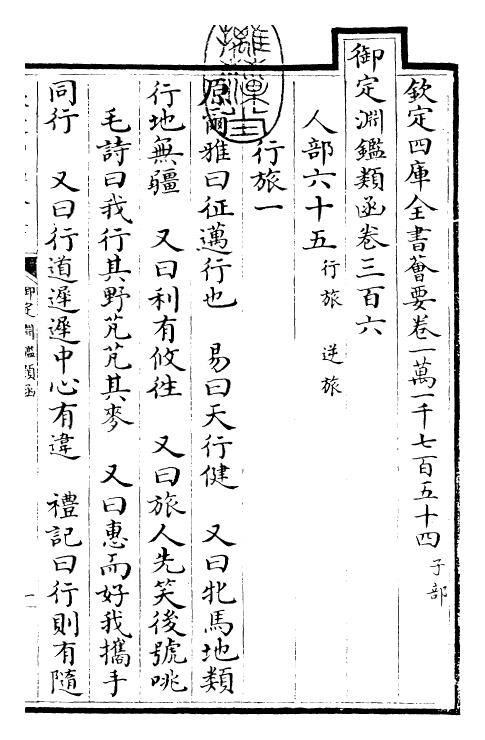 欽定四庫全書薈要卷一萬一千七百五十四 子部
御定淵鑑類函卷三百六
人部六十五 行旅 逆旅
行旅一
原爾雅曰征邁行也 易曰天行健 又曰牝馬地類
行地無疆 又曰利有攸往 又曰旅人先笑後號咷
毛詩曰我行其野芃芃其麥 又曰惠而好我攜手
同行 又曰行道遲遲中心有違 禮記曰行則有隨
御定淵鑑類函
一